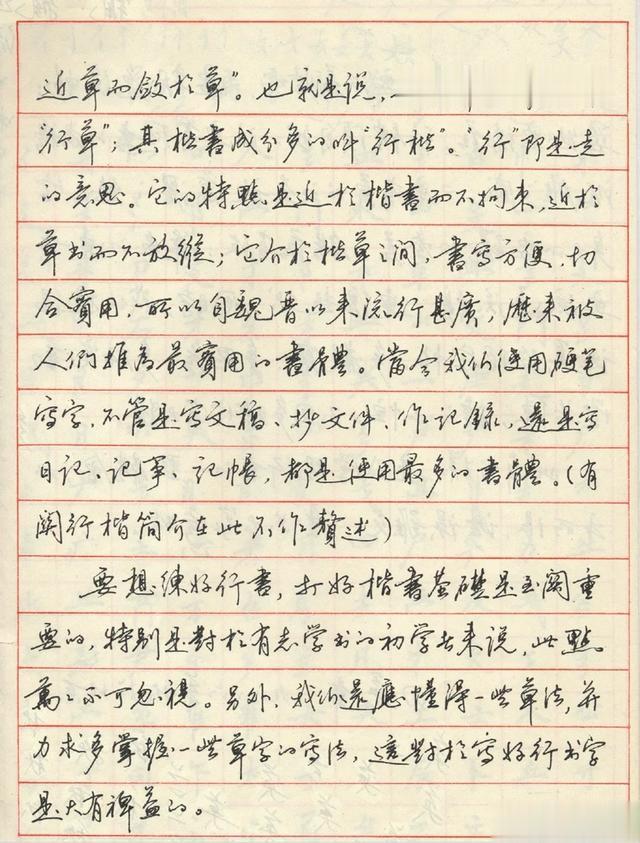 近草而斂於草”。也就是说，
“行草”；其楷書成分多的叫“行楷”。“行”即是走
的意思。它的特點是近於楷書而不拘束，近於
草书而不放縱；它介於楷草之间，書写方便，切
合實用，所以自魏晋以来流行甚廣，歷来被
人們推為最實用的書體。當今我们使用硬笔
写字，不管是写文稿、抄文件、作记録，還是写
日记、记事、記帳，都是使用最多的書體。（有
関行楷简介在此不作贅述）
要想練好行書，打好楷書基礎是至関重
要的，特别是對於有志学书的初学者来说，此點
萬万不可忽視。另外，我们還應懂得一些草法，并
力求多掌握一些草字的写法，這對於写好行书字
是大有裨益的。